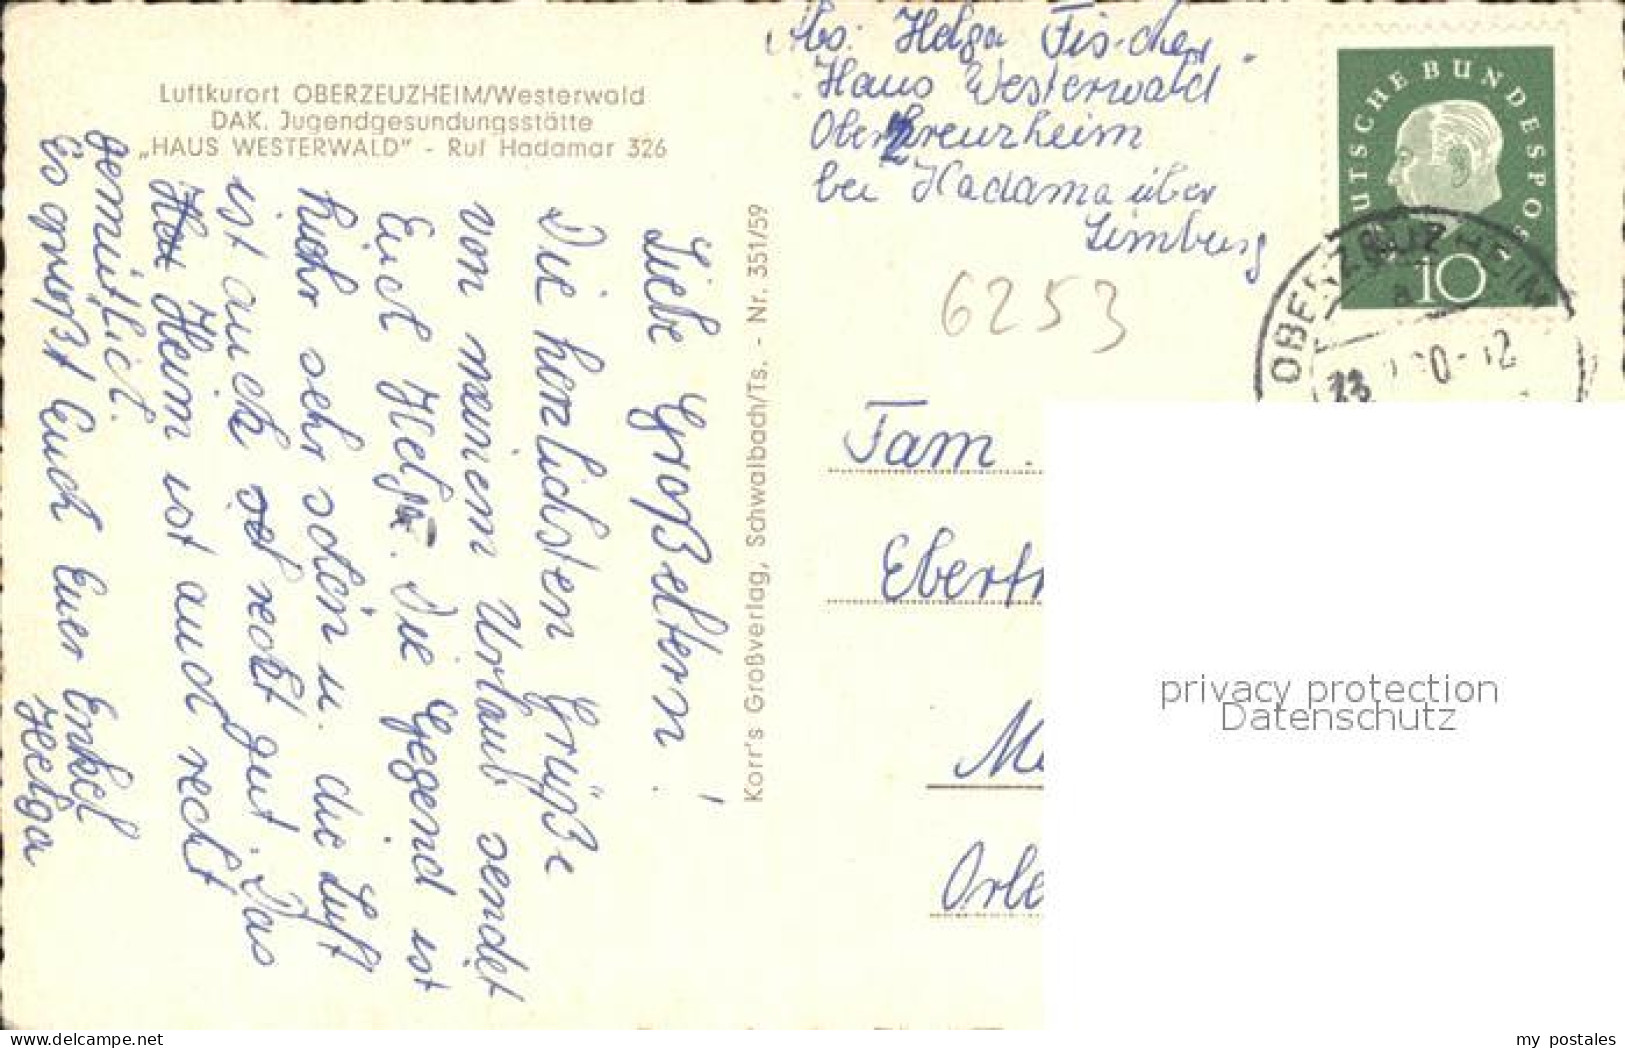 Luftkurort OBERZEUZHEIM/Westerwald
DAK. Jugendgesundungsstätte
„HAUS WESTERWALD" - Ruf Hadamar 326
Liebe Großeltern!
Die herzlichsten Grüße
von meinem Urlaub sendet
Euch Helga. Die Gegend ist
hier sehr schön u. die Luft
ist auch recht gut. Das
Heim ist auch recht
gemütlich.
Es grüßt Euch Euer Enkel
Helga
Korr's Großverlag, Schwalbach/Ts. - Nr. 351/59
Abs. Helga Fischer
Haus Westerwald
Oberzreuzheim
bei Hadama über
Limburg
6253
DEUTSCHE BUNDESPOST
10
OBERZEUZHEIM
a
Fam.
Ebertr
Me
Orle
privacy protection
Datenschutz
my postales